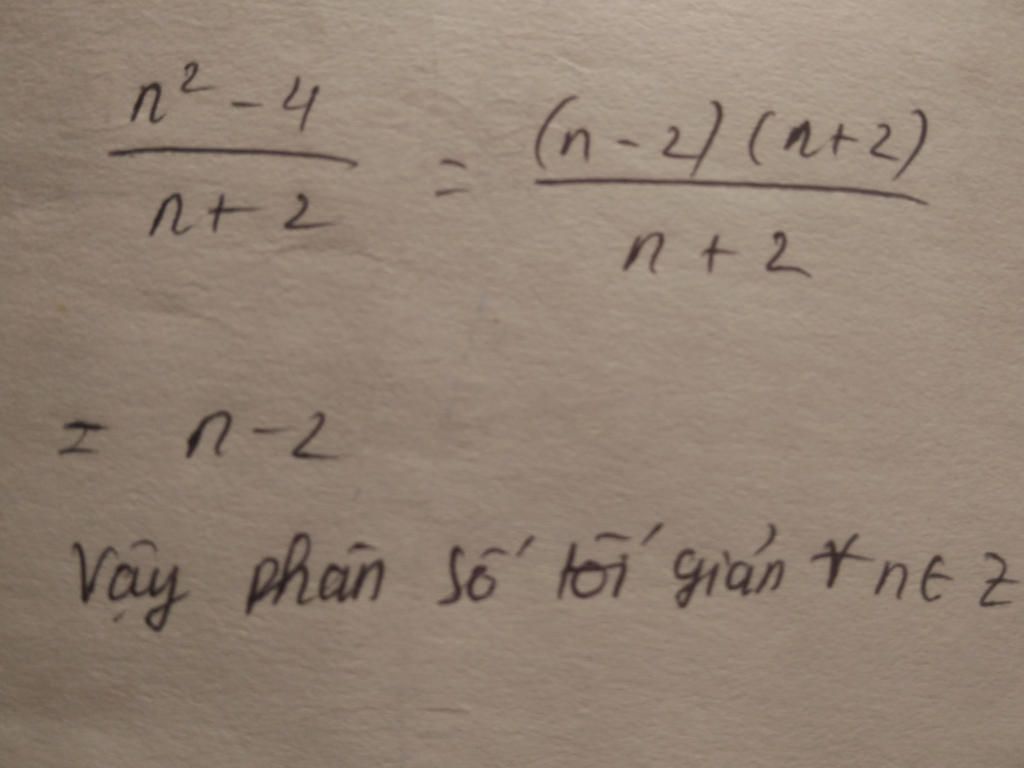 n² - 4 / n + 2 = (n - 2) (n + 2) / n + 2
= n - 2
Vậy phân số tối giản ∀ n ∈ Z